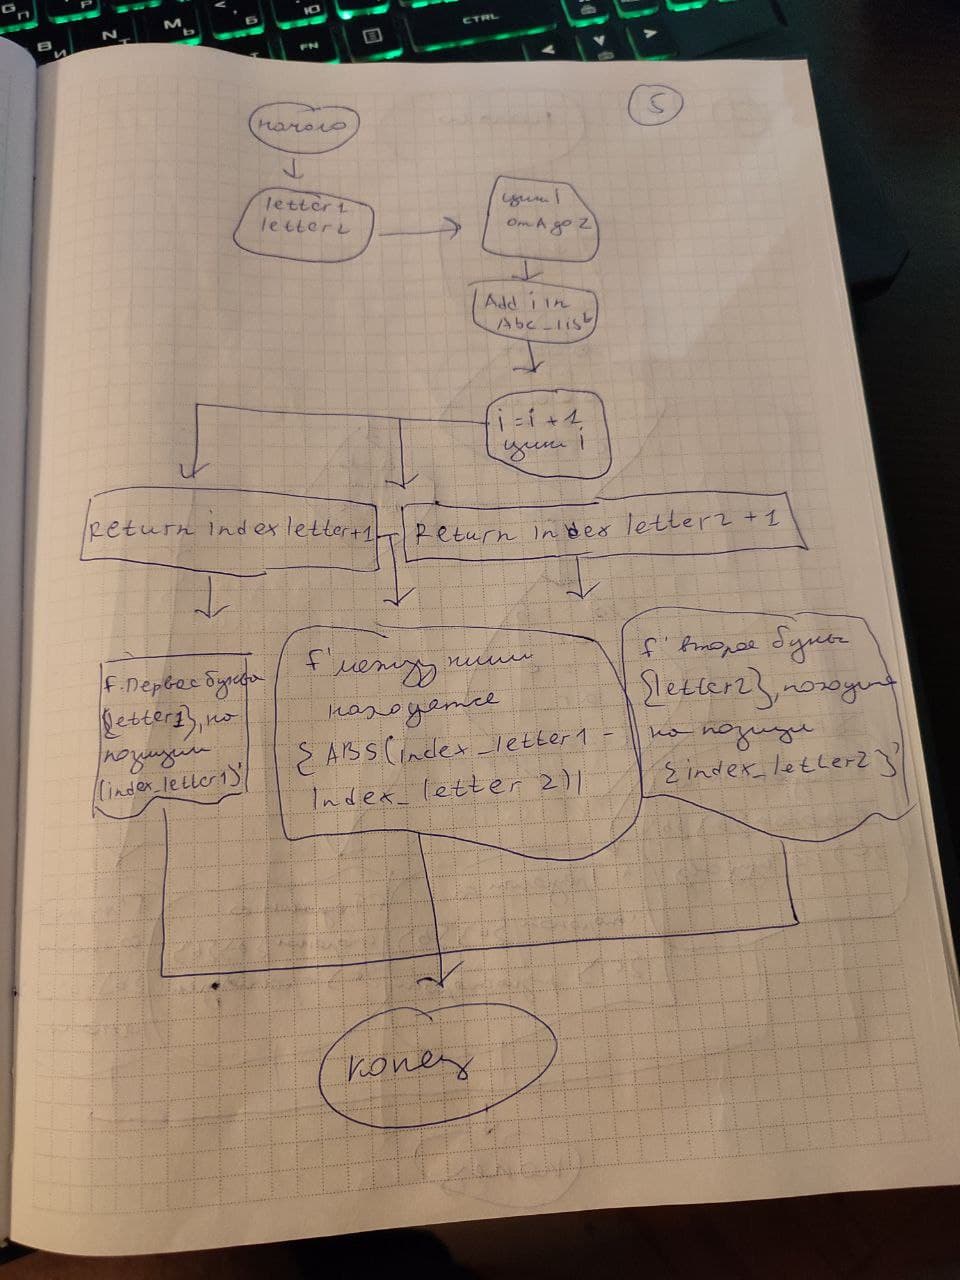 5
начало
letter1
letter2
цикл i
от A до Z
Add i in
Abc_list
i = i + 1
цикл i
Return index letter+1
Return index letter2 +1
f'Первая буква
{letter1}, на
позиции
{index_letter1}'
f'между ними
находятся
{ABS(index_letter1 -
Index_letter 2)|
f' вторая буквы
{letter2}, находится
на позиции
{index_letter2}'
конец
CTRL
FN